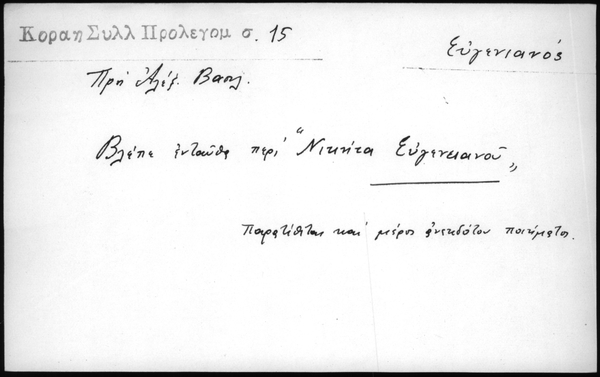 Κοραη Συλλ Προλεγομ σ. 15
Εὐγενιανός
Πρὸς Ἀλέξ. Βασιλ.
Βλέπε ἐνταῦθα περί "Νικήτα Εὐγενειανοῦ„
Παρατίθεται καί μέρος ἀνεκδότου ποιήματος.